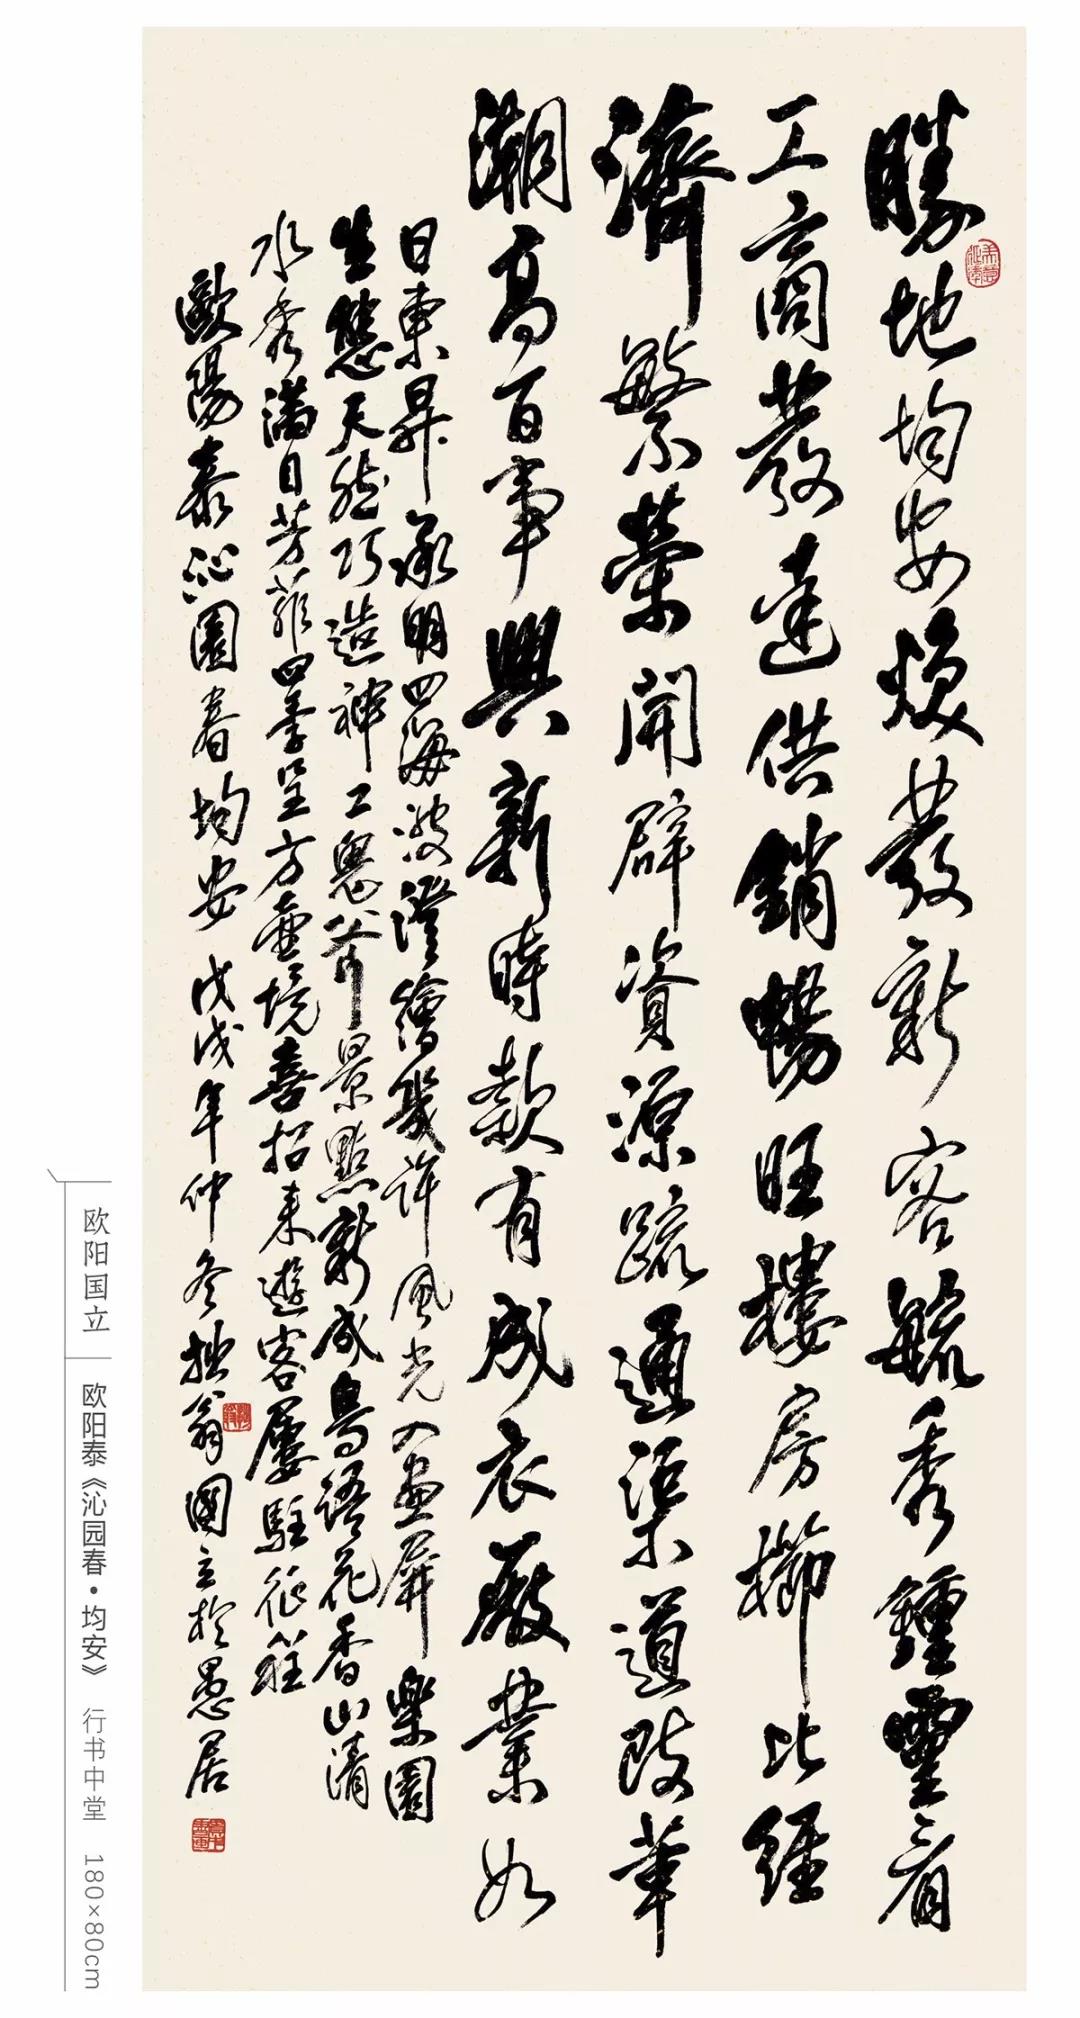 勝地均安煥發新容毓秀鍾靈看
工商發達供銷暢旺樓房櫛比經
濟繁榮開辟資源疏通渠道改革
潮高百事興新時款有成衣廠業如
日東昇承明四海波澄繪幾許風光入畫屏樂園
生態天然巧造神工鬼斧景點新成鳥語花香山清
水秀滿目芳菲四季呈方壺境喜招來遊客屢駐征程
歐陽泰沁園春均安戊戌年仲冬拙翁國立於愚居
欧阳国立 欧阳泰《沁园春·均安》 行书中堂 180×80cm